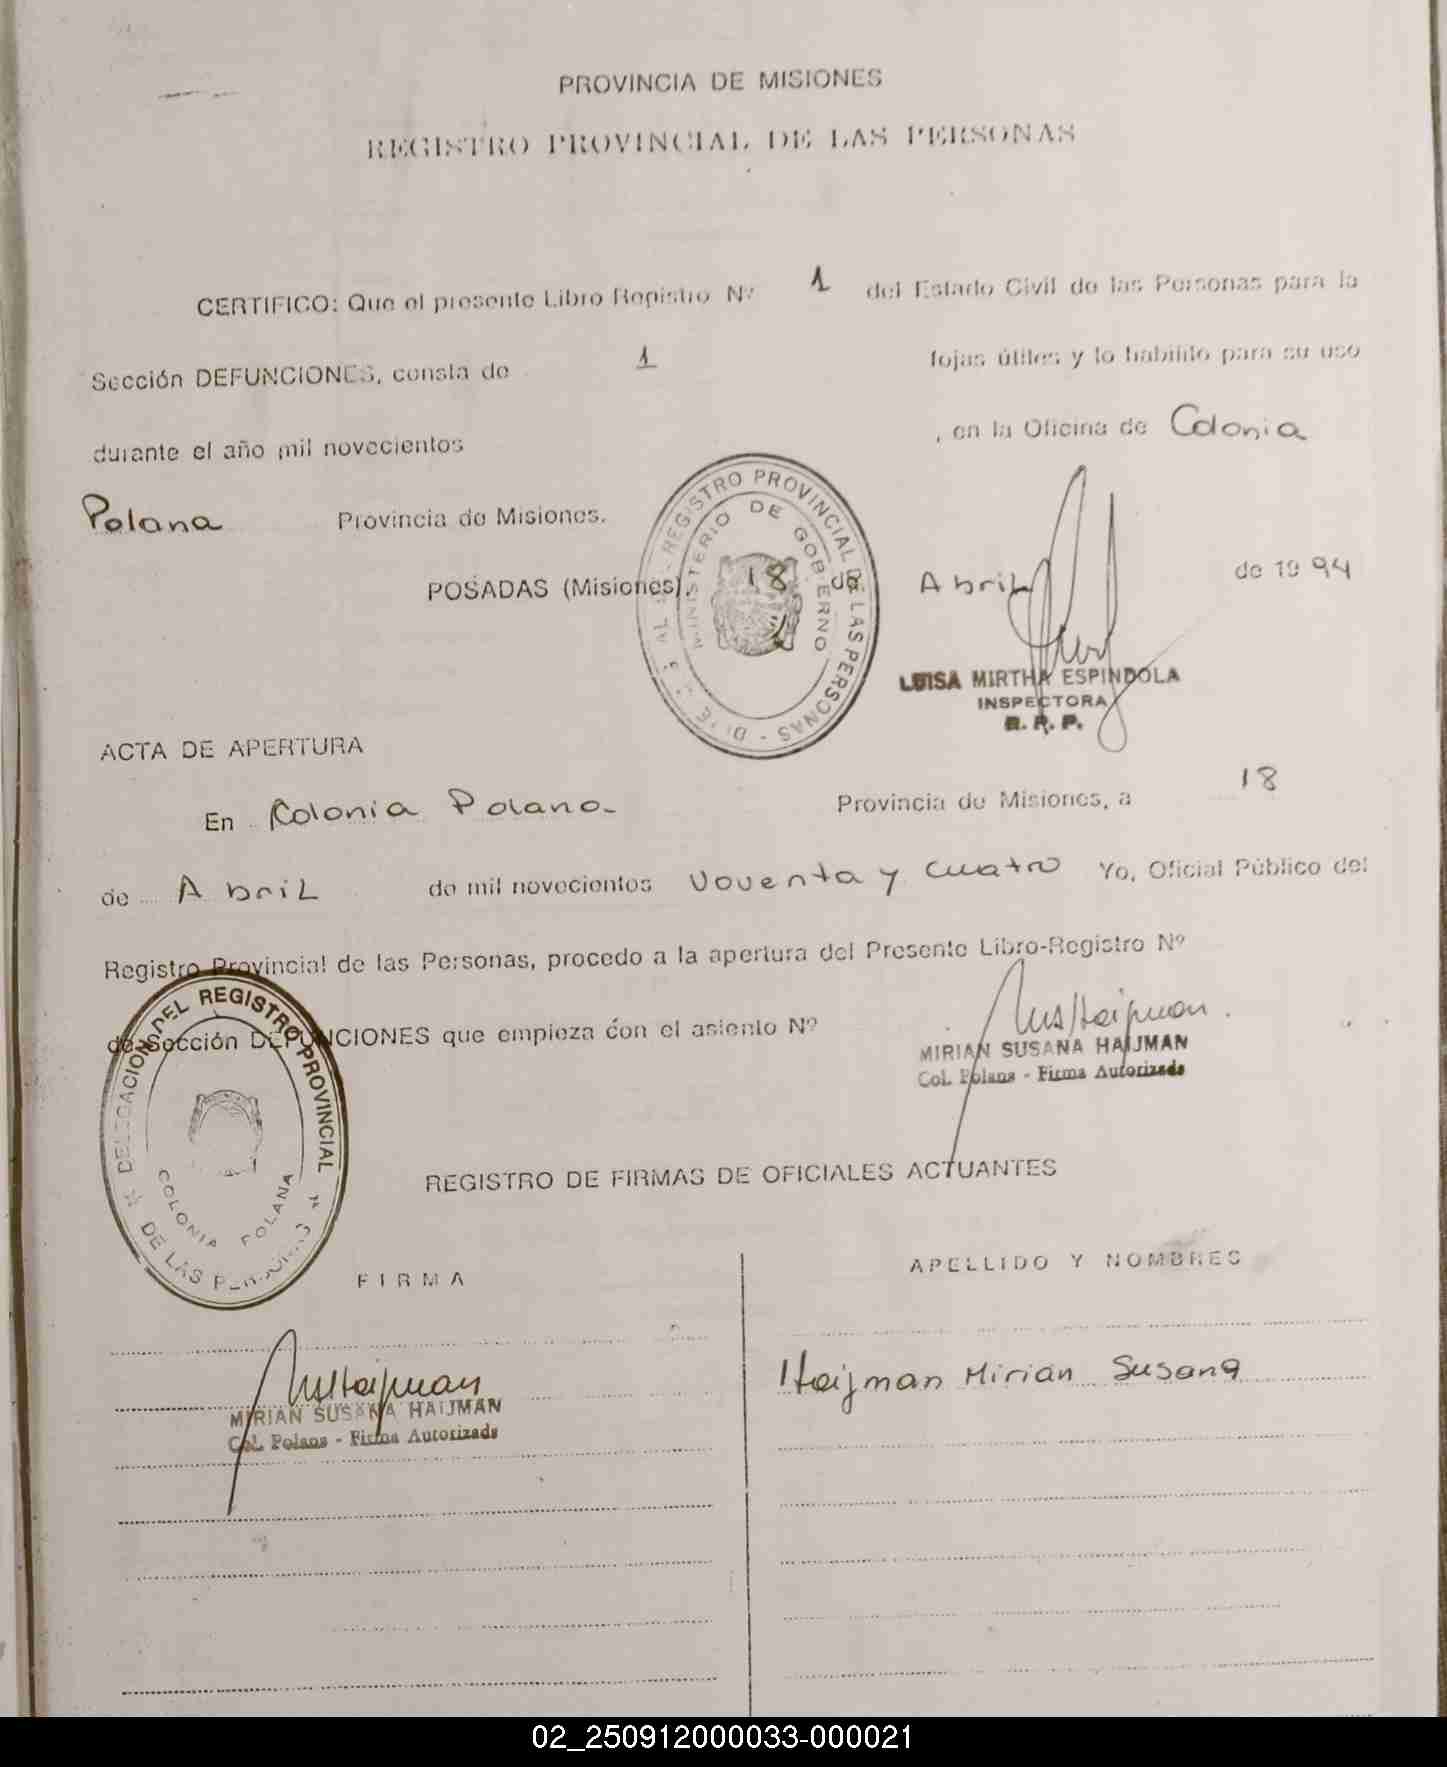 PROVINCIA DE MISIONES
REGISTRO PROVINCIAL DE LAS PERSONAS
CERTIFICO: Que el presente Libro Registro Nº 1 del Estado Civil de las Personas para la
Sección DEFUNCIONES, consta de 1 fojas útiles y lo habilito para su uso
durante el año mil novecientos , en la Oficina de Colonia
Polana Provincia de Misiones.
POSADAS (Misiones), 18 de Abril de 1994
REGISTRO PROVINCIAL DE LAS PERSONAS
MINISTERIO DE GOBIERNO
LUISA MIRTHA ESPINDOLA
INSPECTORA
R. P. P.
ACTA DE APERTURA
En Colonia Polana Provincia de Misiones, a 18
de Abril de mil novecientos Noventa y cuatro Yo, Oficial Público del
Registro Provincial de las Personas, procedo a la apertura del Presente Libro-Registro Nº
de Sección DEFUNCIONES que empieza con el asiento Nº
MIRIAN SUSANA HAIJMAN
Col. Polana - Firma Autorizada
DELEGACION DEL REGISTRO PROVINCIAL DE LAS PERSONAS
COLONIA POLANA
REGISTRO DE FIRMAS DE OFICIALES ACTUANTES
FIRMA APELLIDO Y NOMBRES
Haijman Mirian Susana
MIRIAN SUSANA HAIJMAN
Col. Polana - Firma Autorizada
02_250912000033-000021